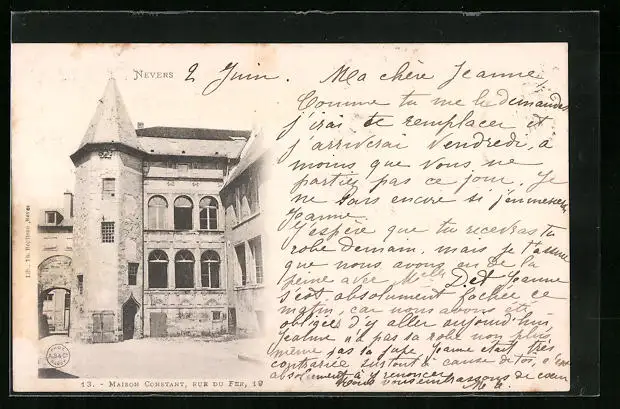 NEVERS
2 Juin.
Ma chère Jeanne,
Comme tu me le demandes
j'irai te remplacer et
j'arriverai Vendredi, à
moins que vous ne
partiez pas ce jour. Je
ne sais encore si j'emmènerai
Jeanne.
J'espère que tu recevras ta
robe demain, mais je t'assure
que nous avons eu de la
peine avec Melle Jeanne
s'est absolument fâchée ce
matin, car nous avons été
obligées d'y aller aujourd'hui
Jeanne n'a pas sa robe non plus,
même pas la jupe. Jeanne était très
contrariée surtout à cause de toi,
absolument à y renoncer.
Nous vous embrassons de cœur
13. - MAISON CONSTANT, RUE DU FER, 19